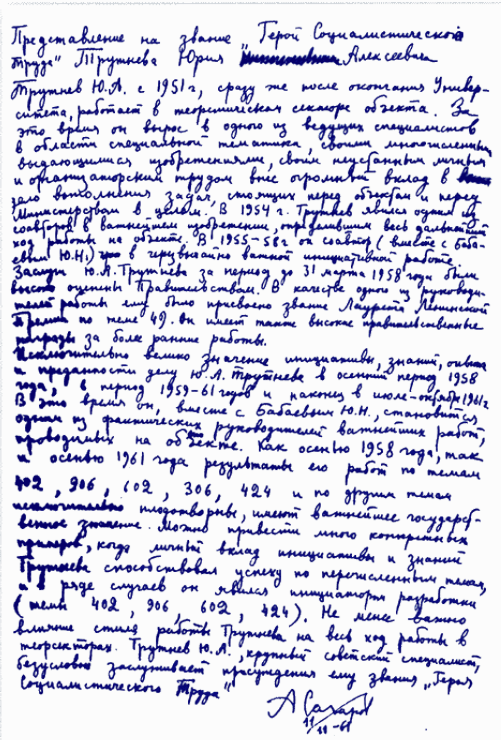 Представление на звание „Герой Социалистического
Труда" Трутнева Юрия Алексеевича
Трутнев Ю.А. с 1951г, сразу же после окончания Универ-
ситета, работает в теоретическом секторе объекта. За
это время он вырос в одного из ведущих специалистов
в области специальной тематики, своими многочисленными
выдающимися изобретениями, своим неустанным личным
и организаторским трудом внес огромный вклад в
дело выполнения задач, стоящих перед объектом и перед
Министерством в целом. В 1954 г. Трутнев явился одним из
соавторов в важнейшем изобретении, определившим весь дальнейший
ход работы на объекте. В 1955-58г он соавтор (вместе с Баба-
евым Ю.Н.) в чрезвычайно важной инициативной работе.
Заслуги Ю.А. Трутнева за период до 31 марта 1958 года были
высоко оценены Правительством. В качестве одного из руководи-
телей работы ему было присвоено звание Лауреата Ленинской
Премии по теме 49. Он имеет также высокие правительственные
награды за более ранние работы.
Исключительно велико значение инициативы, знаний, опыта
и преданности делу Ю.А. Трутнева в осенний период 1958
года, в период 1959-61 годов и наконец в июле-октябре 1961г
В это время он, вместе с Бабаевым Ю.Н., становится
одним из фактических руководителей важнейших работ,
проводимых на объекте. Как осенью 1958 года, так
и осенью 1961 года результаты его работ по темам
402, 906, 602, 306, 424 и по другим темам
исключительно плодотворны, имеют важнейшее государст-
венное значение. Можно привести много конкретных
примеров, когда личный вклад инициативы и знаний
Трутнева способствовал успеху по перечисленным темам,
и в ряде случаев он явился инициатором разработки
(темы 402, 906, 602, 424). Не менее важно
влияние стиля работы Трутнева на весь ход работы в
теорсекторах. Трутнев Ю.А., крупный советский специалист,
безусловно заслуживает присуждения ему звания „Героя
Социалистического Труда"
А Сахаров
11/11-61